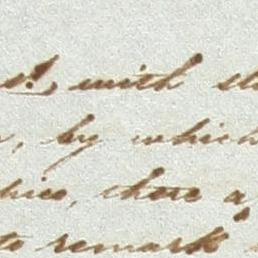 with
, by which
, there a
to remark